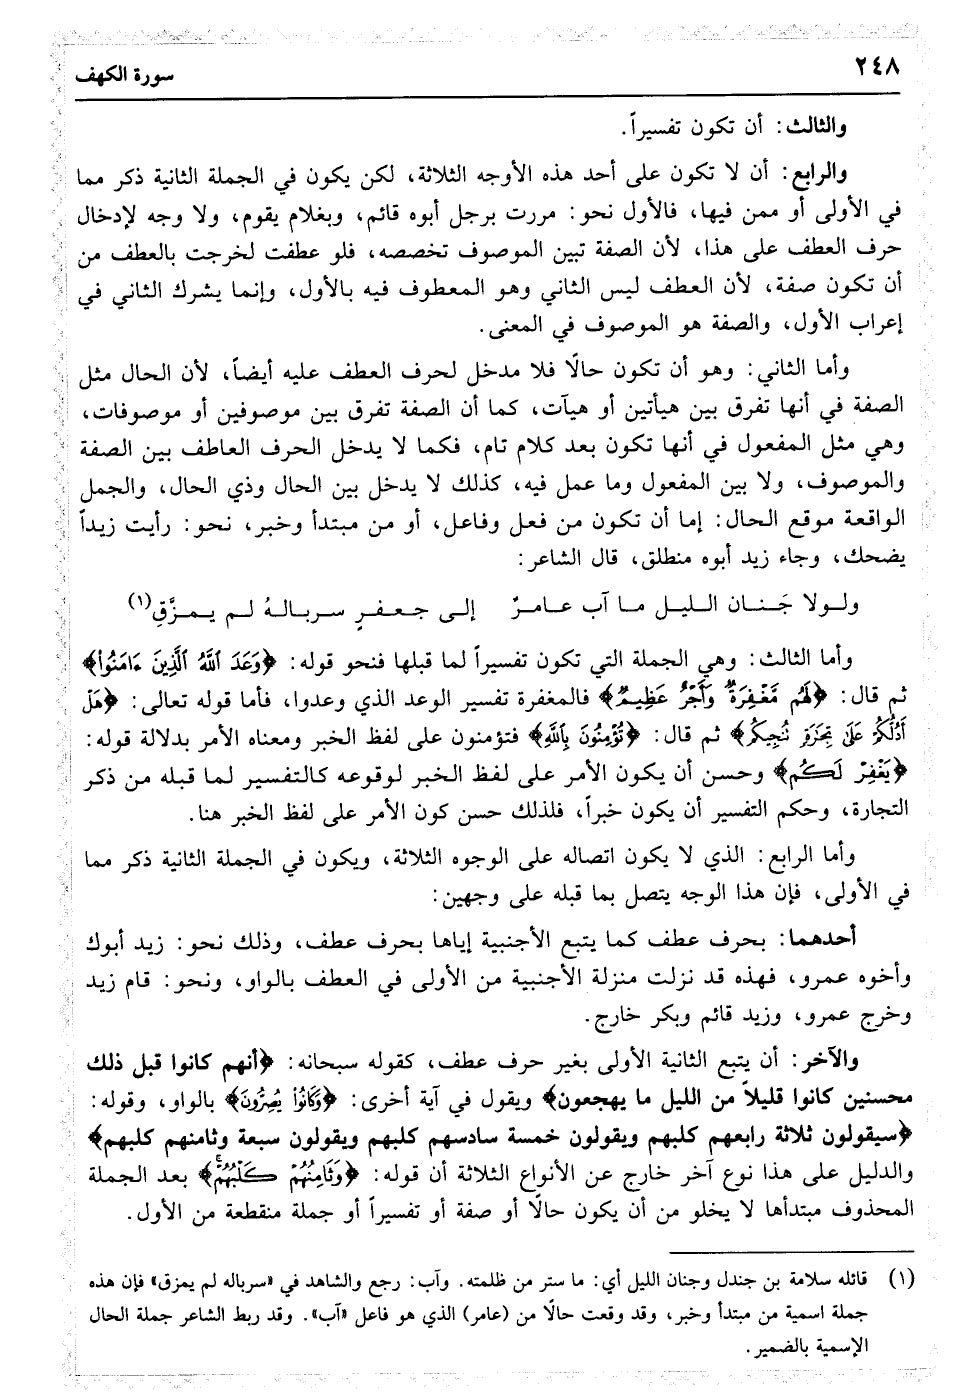 ٢٤٨
سورة الكهف
والثالث: أن تكون تفسيراً.
والرابع: أن لا تكون على أحد هذه الأوجه الثلاثة، لكن يكون في الجملة الثانية ذكر مما
في الأولى أو ممن فيها، فالأول نحو: مررت برجل أبوه قائم، وبغلام يقوم، ولا وجه لإدخال
حرف العطف على هذا، لأن الصفة تبين الموصوف تخصصه، فلو عطفت لخرجت بالعطف من
أن تكون صفة، لأن العطف ليس الثاني وهو المعطوف فيه بالأول، وإنما يشرك الثاني في
إعراب الأول، والصفة هو الموصوف في المعنى.
وأما الثاني: وهو أن تكون حالًا فلا مدخل لحرف العطف عليه أيضاً، لأن الحال مثل
الصفة في أنها تفرق بين هيأتين أو هيآت، كما أن الصفة تفرق بين موصوفين أو موصوفات،
وهي مثل المفعول في أنها تكون بعد كلام تام، فكما لا يدخل الحرف العاطف بين الصفة
والموصوف، ولا بين المفعول وما عمل فيه، كذلك لا يدخل بين الحال وذي الحال، والجمل
الواقعة موقع الحال: إما أن تكون من فعل وفاعل، أو من مبتدأ وخبر، نحو: رأيت زيداً
يضحك، وجاء زيد أبوه منطلق، قال الشاعر:
ولولا جَنان الليل ما آب عامرٌ إلى جعفرٍ سربالهُ لم يمزَّقِ(١)
وأما الثالث: وهي الجملة التي تكون تفسيراً لما قبلها فنحو قوله: ﴿وَعَدَ ٱللَّهُ ٱلَّذِينَ ءَامَنُوا۟﴾
ثم قال: ﴿لَهُم مَّغْفِرَةٌ وَأَجْرٌ عَظِيمٌ﴾ فالمغفرة تفسير الوعد الذي وعدوا، فأما قوله تعالى: ﴿هَلْ
أَدُلُّكُمْ عَلَىٰ تِجَٰرَةٍ تُنجِيكُم﴾ ثم قال: ﴿تُؤْمِنُونَ بِٱللَّهِ﴾ فتؤمنون على لفظ الخبر ومعناه الأمر بدلالة قوله:
﴿يَغْفِرْ لَكُم﴾ وحسن أن يكون الأمر على لفظ الخبر لوقوعه كالتفسير لما قبله من ذكر
التجارة، وحكم التفسير أن يكون خبراً، فلذلك حسن كون الأمر على لفظ الخبر هنا.
وأما الرابع: الذي لا يكون اتصاله على الوجوه الثلاثة، ويكون في الجملة الثانية ذكر مما
في الأولى، فإن هذا الوجه يتصل بما قبله على وجهين:
أحدهما: بحرف عطف كما يتبع الأجنبية إياها بحرف عطف، وذلك نحو: زيد أبوك
وأخوه عمرو، فهذه قد نزلت منزلة الأجنبية من الأولى في العطف بالواو، ونحو: قام زيد
وخرج عمرو، وزيد قائم وبكر خارج.
والآخر: أن يتبع الثانية الأولى بغير حرف عطف، كقوله سبحانه: ﴿أنهم كانوا قبل ذلك
محسنين كانوا قليلاً من الليل ما يهجعون﴾ ويقول في آية أخرى: ﴿وَكَانُوا۟ يُصِرُّونَ﴾ بالواو، وقوله:
﴿سيقولون ثلاثة رابعهم كلبهم ويقولون خمسة سادسهم كلبهم ويقولون سبعة وثامنهم كلبهم﴾
والدليل على هذا نوع آخر خارج عن الأنواع الثلاثة أن قوله: ﴿وَثَامِنُهُمْ كَلْبُهُمْ﴾ بعد الجملة
المحذوف مبتدأها لا يخلو من أن يكون حالًا أو صفة أو تفسيراً أو جملة منقطعة من الأول.
(١) قائله سلامة بن جندل وجنان الليل أي: ما ستر من ظلمته. وآب: رجع والشاهد في «سرباله لم يمزق» فإن هذه
جملة اسمية من مبتدأ وخبر، وقد وقعت حالًا من (عامر) الذي هو فاعل «آب». وقد ربط الشاعر جملة الحال
الإسمية بالضمير.